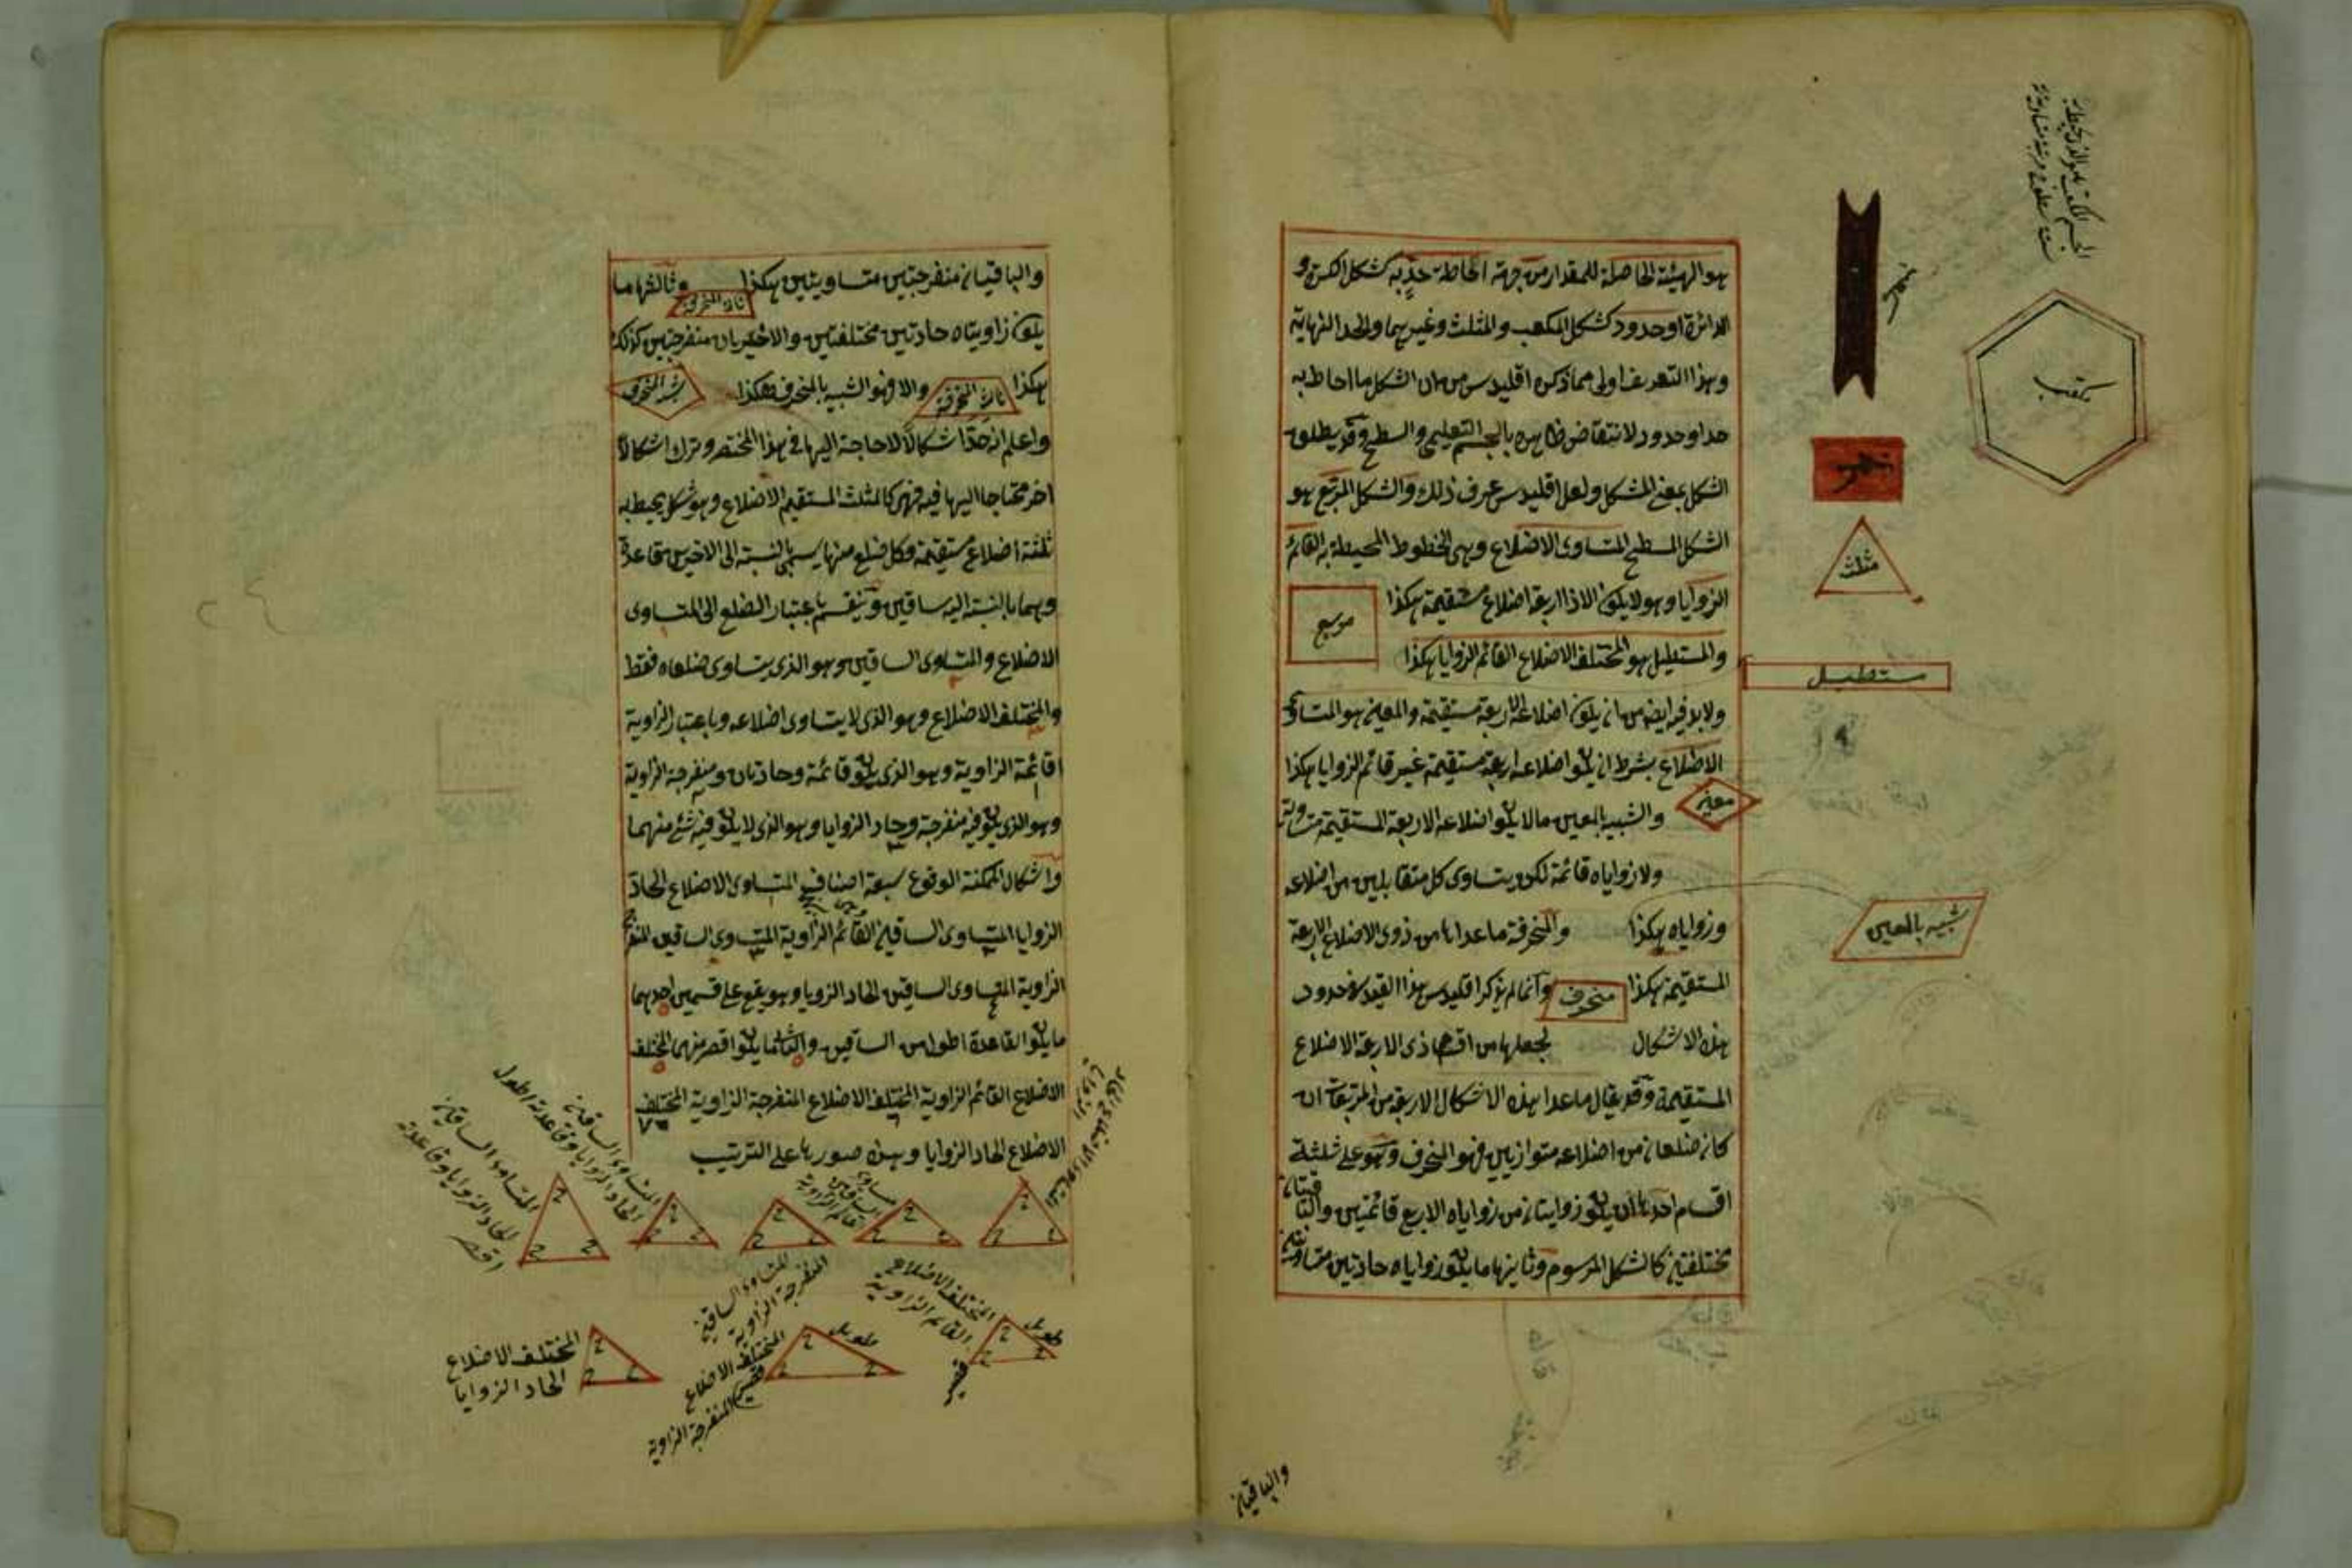 هو الهيئة الحاصلة للمقدار من جهة احاطة حدٍّ به كشكل الكرة و
الدائرة او حدود كشكل المكعب والمثلث وغيرهما والحد النهاية
وهذا التعريف اولى مما ذكره اقليدس من ان الشكل ما احاط به
حد او حدود لانتقاض ظاهره بالجسم التعليمي والسطح وقد يطلق
الشكل بمعنى المشكل ولعل اقليدس عرف ذلك والشكل المربع هو
الشكل المسطح المتساوى الاضلاع وهى الخطوط المحيطة به القائم
الزوايا وهو لا يكون الا ذا اربعة اضلاع مستقيمة هكذا
مربع
والمستطيل هو المختلف الاضلاع القائم الزوايا هكذا
مستطيل
ولابد فيه ايضا من ان يكون اضلاعه الاربعة مستقيمة والمعين هو المتساوى
الاضلاع بشرط ان يكون اضلاعه اربعة مستقيمة غير قائم الزوايا هكذا
معين
والشبيه بالمعين ما لا يكون اضلاعه الاربعة المستقيمة متساوية
ولا زواياه قائمة لكن يتساوى كل متقابلين من اضلاعه
وزواياه هكذا والمنحرفة ما عداها من ذوى الاضلاع الاربعة
شبيه بالمعين
المستقيمة هكذا منحرف وانما لم يذكر اقليدس هذا القيد في حدود
هذه الاشكال لجعلها من اقسام ذى الاربعة الاضلاع
المستقيمة وقد يقال ما عدا هذه الاشكال الاربعة من المربعات ان
كان ضلعان من اضلاعه متوازيين فهو المنحرف وهو على ثلثة
اقسام احدها ان يكون زاويتان من زواياه الاربع قائمتين والباقيتان
مختلفتين كالشكل المرسوم وثانيها ما يكون زواياه حادتين متساويتين
والباقيتان
مثلث
مكعب
والباقيتان منفرجتين متساويتين هكذا وثالثها ما
يكون زاويتاه حادتين مختلفتين والاخريان منفرجتين كذلك
هكذا والا فهو الشبيه بالمنحرف هكذا
واعلم انه حدّ اشكالاً لا حاجة اليها في هذا المختصر وترك اشكالاً
اخر محتاجا اليها فيه فهى كالمثلث المستقيم الاضلاع وهو شكل يحيط به
ثلثة اضلاع مستقيمة وكل ضلع منها يسمى بالنسبة الى الاخرين قاعدة
وهما بالنسبة اليه ساقين وينقسم باعتبار الضلع الى المتساوى
الاضلاع والمتساوى الساقين وهو الذى يتساوى ضلعاه فقط
والمختلف الاضلاع وهو الذى لا يتساوى اضلاعه وباعتبار الزاوية
قائمة الزاوية وهو الذى يكون قائمة وحادتان ومنفرجة الزاوية
وهو الذى يكون فيه منفرجة وحاد الزوايا وهو الذى لا يكون فيه شئ منهما
واشكال الممكنة الوقوع سبعة اصناف المتساوى الاضلاع الحاد
الزوايا المتساوى الساقين القائم الزاوية المتساوى الساقين المنفرج
الزاوية المتساوى الساقين الحاد الزوايا وهو يقع على قسمين احدهما
ما يكون القاعدة اطول من الساقين والثانى ما يكون اقصر منهما المختلف
الاضلاع القائم الزاوية المختلف الاضلاع المنفرجة الزاوية المختلف
الاضلاع الحاد الزوايا وهذه صورها على الترتيب
متساوى الساقين قائم الزاوية
المتساوى الساقين المنفرجة الزاوية
المتساوى الساقين الحاد الزوايا وقاعدته اطول
المتساوى الساقين
الحاد الزوايا وقاعدته
اقصر
المختلف الاضلاع
القائم الزاوية
طويل
قصير
المختلف الاضلاع
المنفرجة الزاوية
طويل
قصير
المختلف الاضلاع
الحاد الزوايا